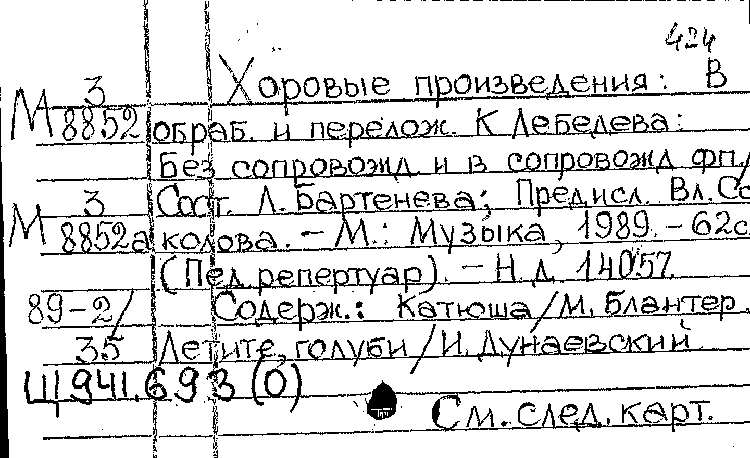 424
М 3 Хоровые произведения: В
8852 обраб. и перелож. К Лебедева:
Без сопровожд и в сопровожд фп/
3 Сост. Л. Бартенева; Предисл. Вл. Со
М 8852а колова. – М.: Музыка, 1989. – 62с
(Пед. репертуар). – Н. д. 14057.
89-2/ Содерж.: Катюша/М. Блантер.
35 Летите, голуби/И. Дунаевский
Щ941.693(0)
См. след. карт.